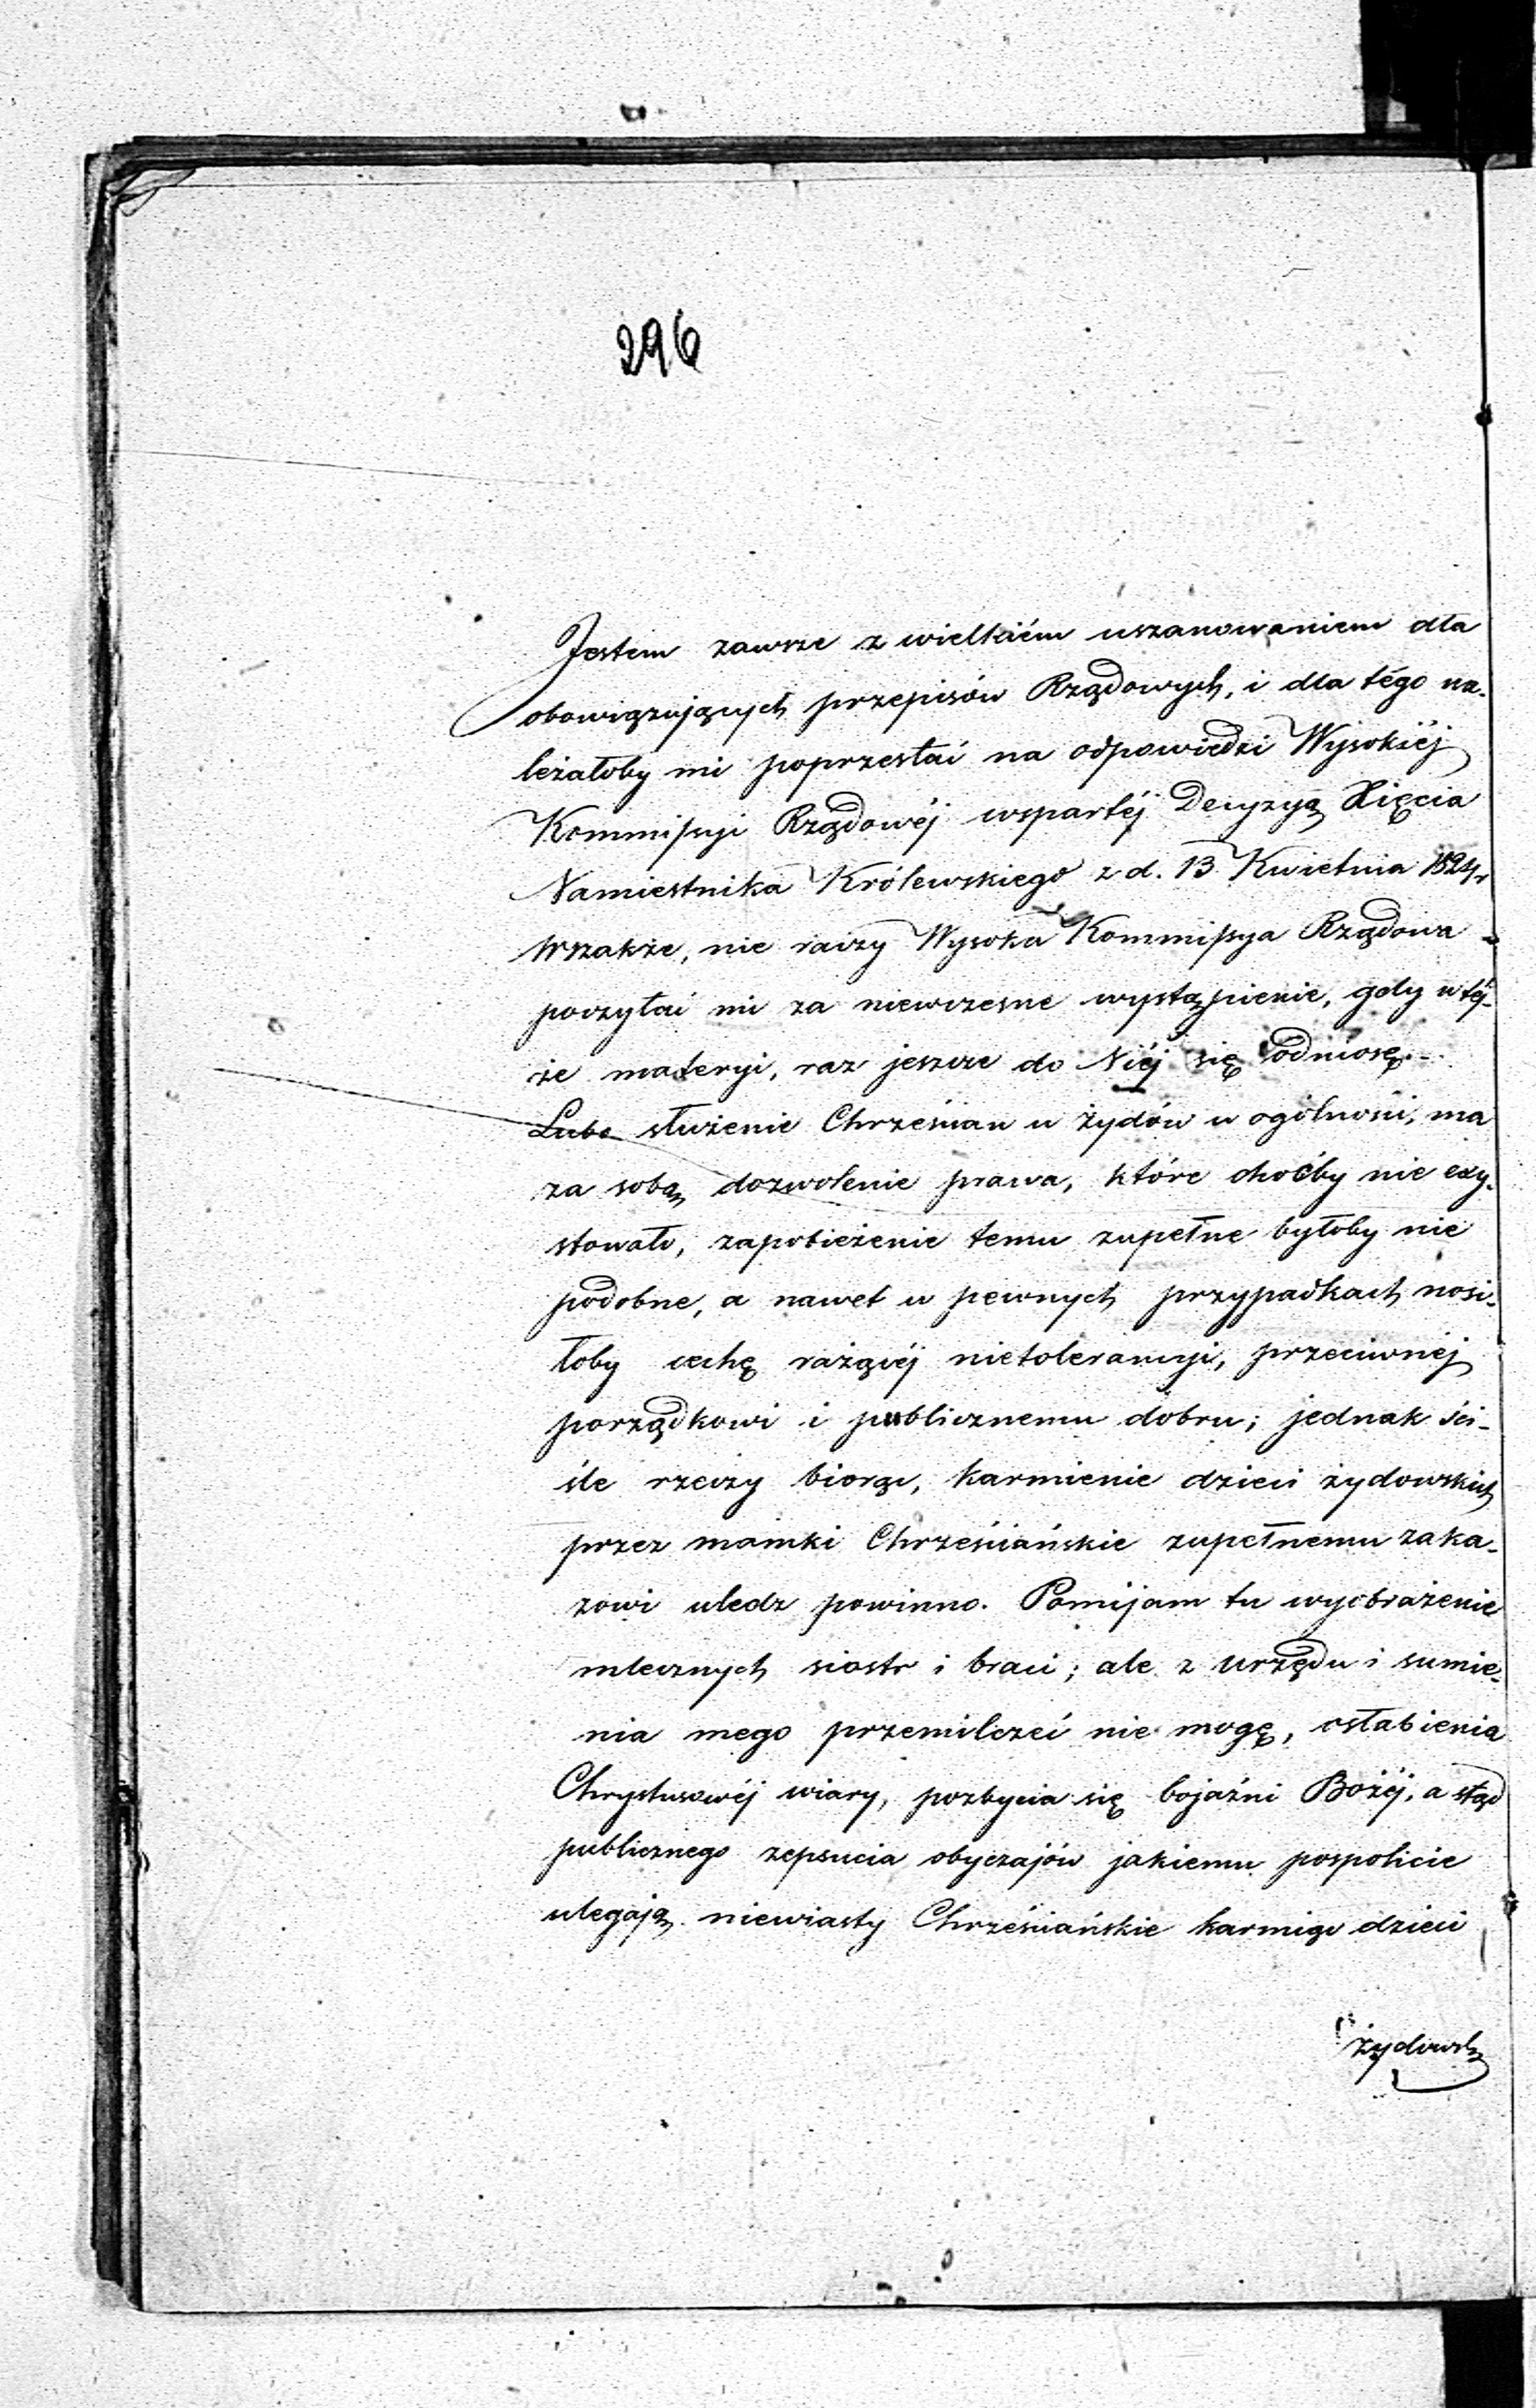 296
Jestem zawsze z wielkiém uszanowaniem dla
obowiązujących przepisów Rządowych, i dla tégo na-
leżałoby mi poprzestać na odpowiedzi Wysokiéj
Kommissyi Rządowéj wspartéj Decyzyą Xięcia
Namiestnika Królewskiego z d. 13 Kwietnia 1824 r
wszakże, nie raczy Wysoka Kommissya Rządowa
poczytać mi za niewczesne wystąpienie, gdy w téj-
że materyi, raz jeszcze do Niéj się odniosę.
Lubo służenie Chrześcian u żydów w ogólności, ma
za sobą dozwolenie prawa, które choćby nie exy-
stowało, zapobieżenie temu zupełne byłoby nie
podobne, a nawet w pewnych przypadkach nosi-
łoby cechę rażącéj nietolerancyi, przeciwnéj
porządkowi i publicznemu dobru; jednak ści-
śle rzeczy biorąc, karmienie dzieci żydowskich
przez mamki Chrześciańskie zupełnemu zaka-
zowi uledz powinno. Pomijam tu wyobrażenie
mlecznych siostr i braci; ale z urzędu i sumie-
nia mego przemilczeć nie mogę, osłabienia
Chrystusowéj wiary, pozbycia się bojaźni Bożéj, a stąd
publicznego zepsucia obyczajów jakiemu pospolicie
ulegają niewiasty Chrześciańskie karmiąc dzieci
żydowsk